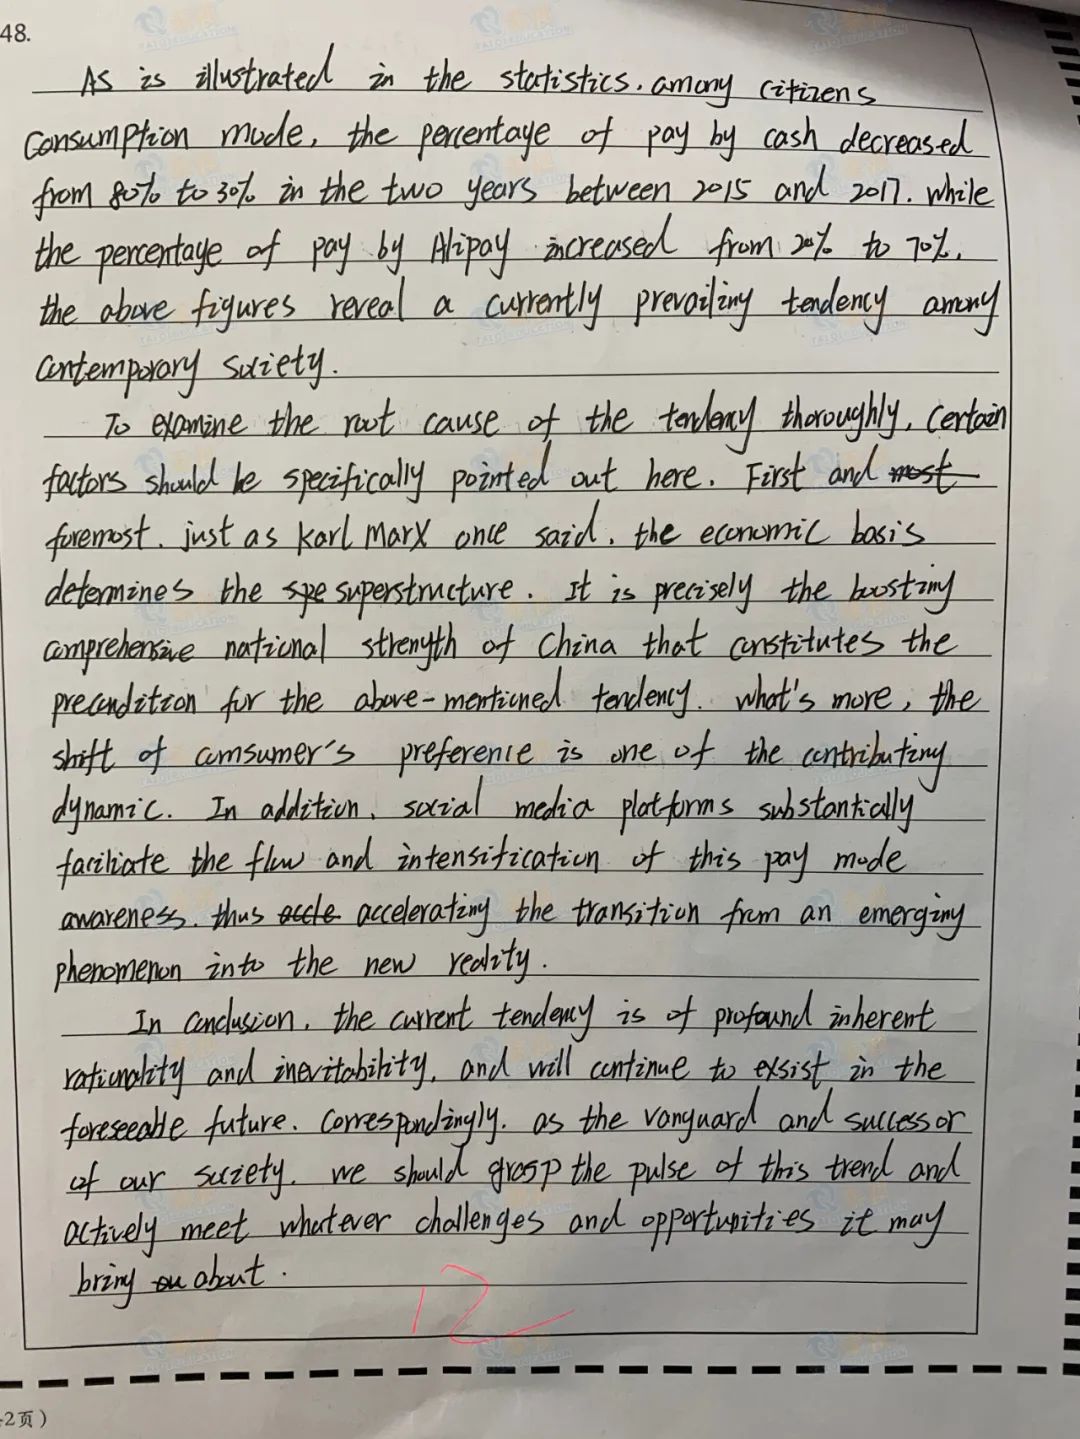 48.
As is illustrated in the statistics. among citizens
Consumption mode, the percentage of pay by cash decreased
from 80% to 30% in the two years between 2015 and 2017. while
the percentage of pay by Alipay increased from 20% to 70%.
the above figures reveal a currently prevailing tendency among
contemporary society.
To examine the root cause of the tendency thoroughly, certain
factors should be specifically pointed out here. First and most
foremost. just as karl Marx once said, the economic basis
determines the spe superstructure. It is precisely the boosting
comprehensive national strength of China that constitutes the
precondition for the above-mentioned tendency. what's more, the
shift of comsumer's preference is one of the contributing
dynamic. In addition, social media platforms substantially
faciliate the flow and intensification of this pay mode
awareness. thus accle accelerating the transition from an emerging
phenomenon into the new reality.
In conclusion, the current tendency is of profound inherent
rationality and inevitability, and will continue to exsist in the
foreseeable future. Correspondingly. as the vanguard and successor
of our society. we should grasp the pulse of this trend and
actively meet whatever challenges and opportunities it may
bring on about.
12
2页)
TAIQI EDUCATION